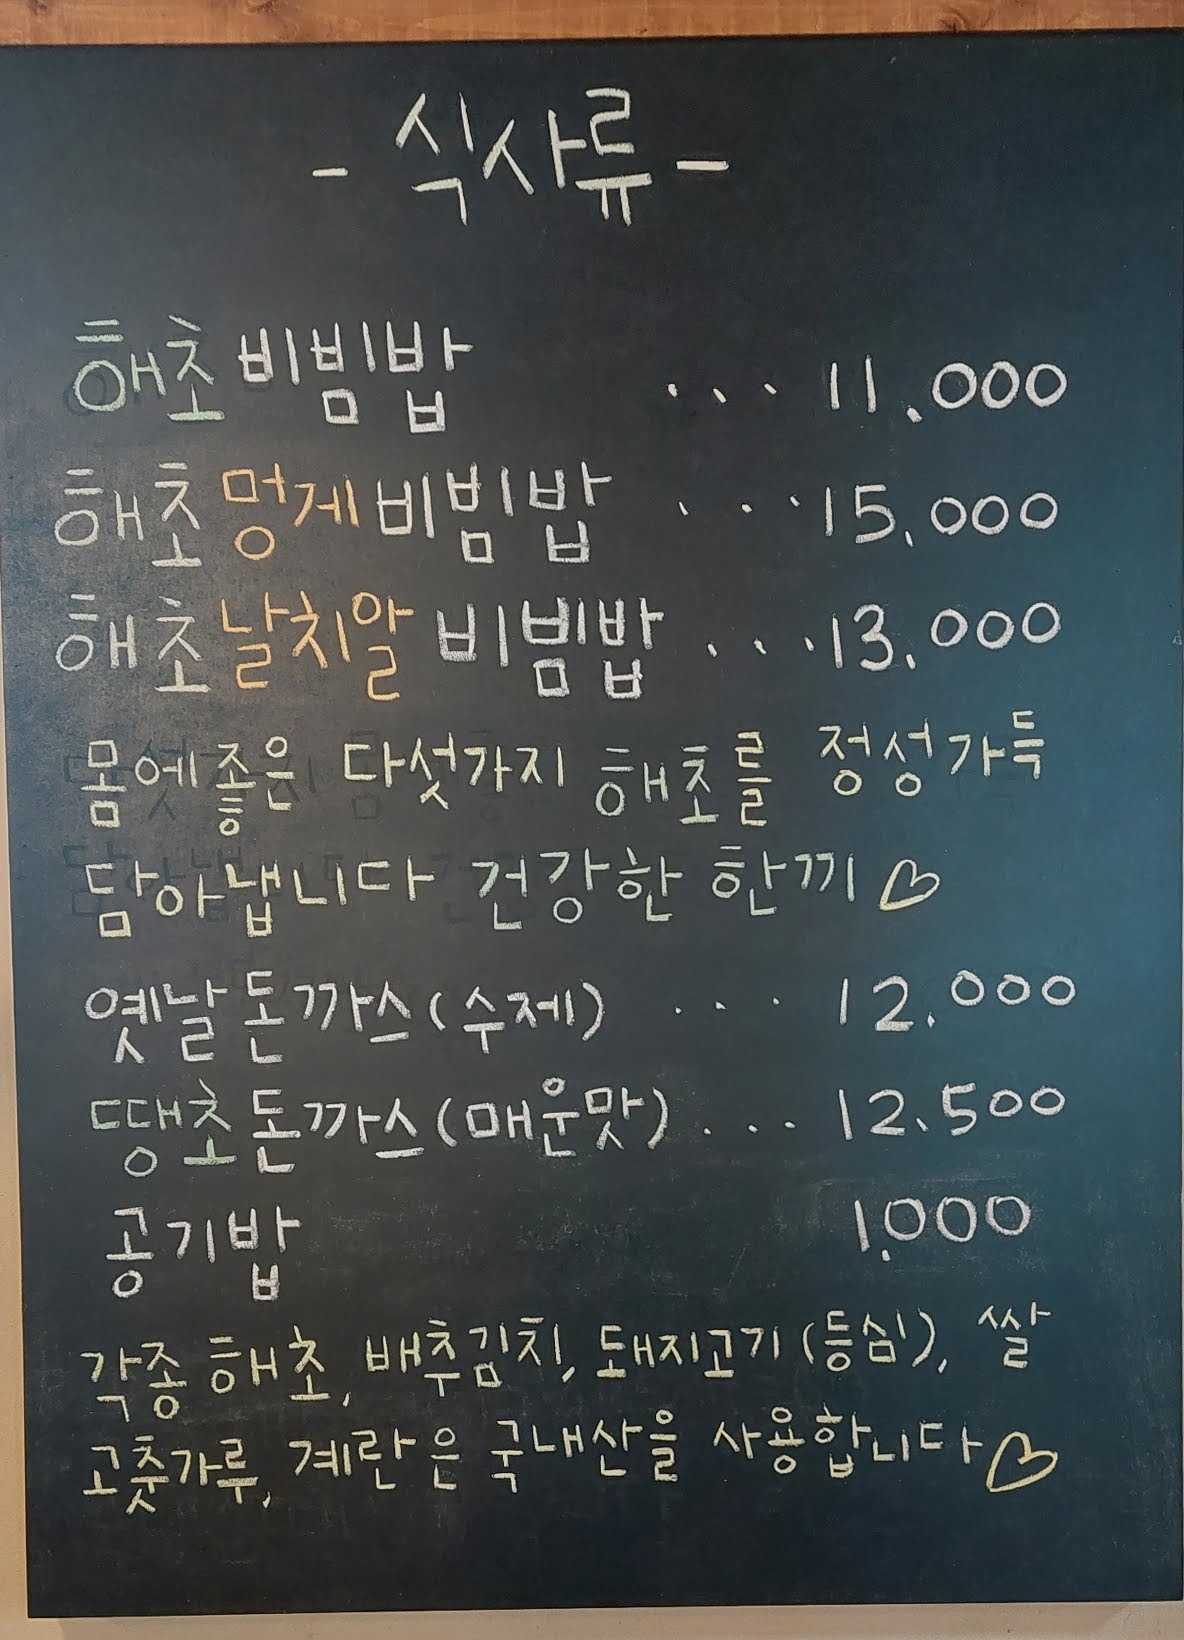 - 식사류 -
해초비빔밥 ... 11.000
해초멍게비빔밥 ... 15.000
해초날치알 비빔밥 ... 13.000
몸에좋은 다섯가지 해초를 정성가득
담아냅니다 건강한 한끼♡
옛날돈까스(수제) ... 12.000
땡초돈까스(매운맛) ... 12.500
공기밥 1.000
각종 해초, 배추김치, 돼지고기(등심), 쌀
고춧가루, 계란은 국내산을 사용합니다♡